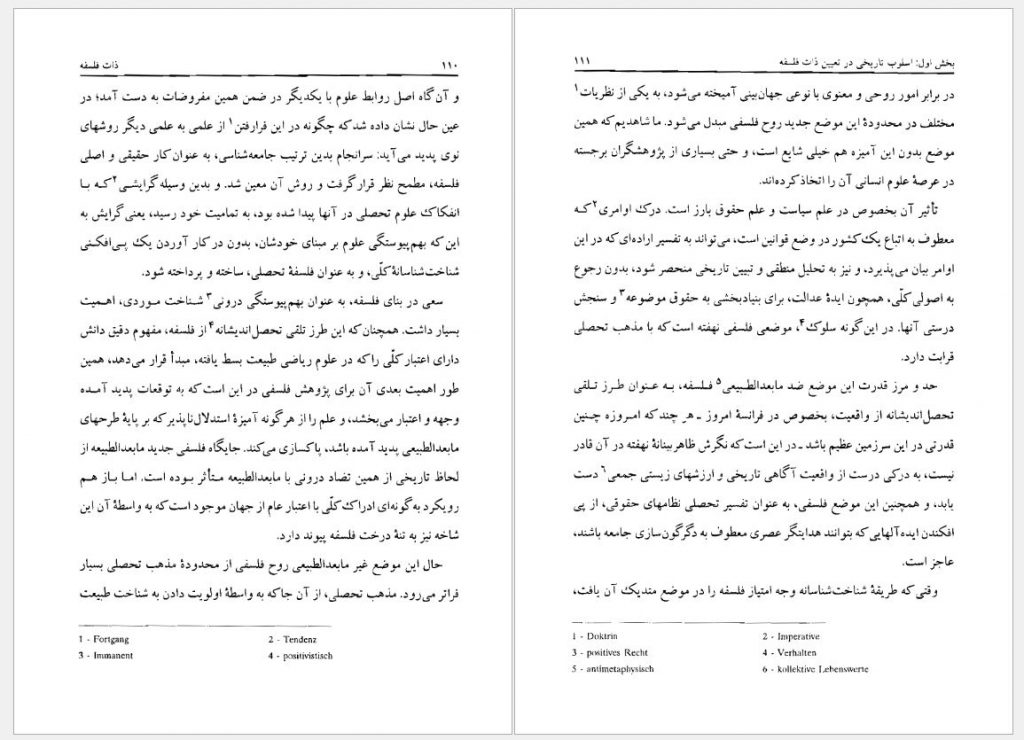 ۱۱۰ ذات فلسفه
و آن گاه اصل روابط علوم با یکدیگر در ضمن همین مفروضات به دست آمد؛ در
عین حال نشان داده شد که چگونه در این فرارفتن۱ از علمی به علمی دیگر روشهای
نوی پدید می‌آید: سرانجام بدین ترتیب جامعه‌شناسی، به عنوان کار حقیقی و اصلی
فلسفه، مطمح نظر قرار گرفت و روش آن معین شد. و بدین وسیله گرایشی۲ که با
انفکاک علوم تحصلی در آنها پیدا شده بود، به تمامیت خود رسید، یعنی گرایش به
این که بهم‌پیوستگی علوم بر مبنای خودشان، بدون در کار آوردن یک پی‌افکنی
شناخت‌شناسانهٔ کلّی، و به عنوان فلسفهٔ تحصلی، ساخته و پرداخته شود.
سعی در بنای فلسفه، به عنوان بهم‌پیوستگی درونی۳ شناخت موردی، اهمیت
بسیار داشت. همچنان که این طرز تلقی تحصل‌اندیشانه۴ از فلسفه، مفهوم دقیق دانش
دارای اعتبار کلّی را که در علوم ریاضی طبیعت بسط یافته، مبدأ قرار می‌دهد، همین
طور اهمیت بعدی آن برای پژوهش فلسفی در این است که به توقعات پدید آمده
وجهه و اعتبار می‌بخشد، و علم را از هرگونه آمیزهٔ استدلال‌ناپذیر که بر پایهٔ طرحهای
مابعدالطبیعی پدید آمده باشد، پاکسازی می‌کند. جایگاه فلسفی جدید مابعدالطبیعه از
لحاظ تاریخی از همین تضاد درونی با مابعدالطبیعه متأثر بوده است. اما باز هم
رویکرد به گونه‌ای ادراک کلّی با اعتبار عام از جهان موجود است که به واسطهٔ آن این
شاخه نیز به تنهٔ درخت فلسفه پیوند دارد.
حال این موضع غیر مابعدالطبیعی روح فلسفی از محدودهٔ مذهب تحصلی بسیار
فراتر می‌رود. مذهب تحصلی، از آن جا که به واسطهٔ اولویت دادن به شناخت طبیعت
1 - Fortgang 2 - Tendenz
3 - Immanent 4 - positivistisch
بخش اول: اسلوب تاریخی در تعیین ذات فلسفه ۱۱۱
در برابر امور روحی و معنوی با نوعی جهان‌بینی آمیخته می‌شود، به یکی از نظریات۱
مختلف در محدودهٔ این موضع جدید روح فلسفی مبدل می‌شود. ما شاهدیم که همین
موضع بدون این آمیزه هم خیلی شایع است، و حتی بسیاری از پژوهشگران برجسته
در عرصهٔ علوم انسانی آن را اتخاذ کرده‌اند.
تأثیر آن بخصوص در علم سیاست و علم حقوق بارز است. درک اوامری۲ که
معطوف به اتباع یک کشور در وضع قوانین است، می‌تواند به تفسیر اراده‌ای که در این
اوامر بیان می‌پذیرد، و نیز به تحلیل منطقی و تبیین تاریخی منحصر شود، بدون رجوع
به اصولی کلّی، همچون ایدهٔ عدالت، برای بنیادبخشی به حقوق موضوعه۳ و سنجش
درستی آنها. در این گونه سلوک۴، موضعی فلسفی نهفته است که با مذهب تحصلی
قرابت دارد.
حد و مرز قدرت این موضع ضد مابعدالطبیعی۵ فلسفه، به عنوان طرز تلقی
تحصل‌اندیشانه از واقعیت، بخصوص در فرانسهٔ امروز ـ هر چند که امروزه چنین
قدرتی در این سرزمین عظیم باشد ـ در این است که نگرش ظاهربینانهٔ نهفته در آن قادر
نیست، به درکی درست از واقعیت آگاهی تاریخی و ارزشهای زیستی جمعی۶ دست
یابد، و همچنین این موضع فلسفی، به عنوان تفسیر تحصلی نظامهای حقوقی، از پی
افکندن ایده‌آلهایی که بتوانند هدایتگر عصری معطوف به دگرگون‌سازی جامعه باشند،
عاجز است.
وقتی که طریقهٔ شناخت‌شناسانه وجه امتیاز فلسفه را در موضع متدیک آن یافت،
1 - Doktrin 2 - Imperative
3 - positives Recht 4 - Verhalten
5 - antimetaphysisch 6 - kollektive Lebenswerte